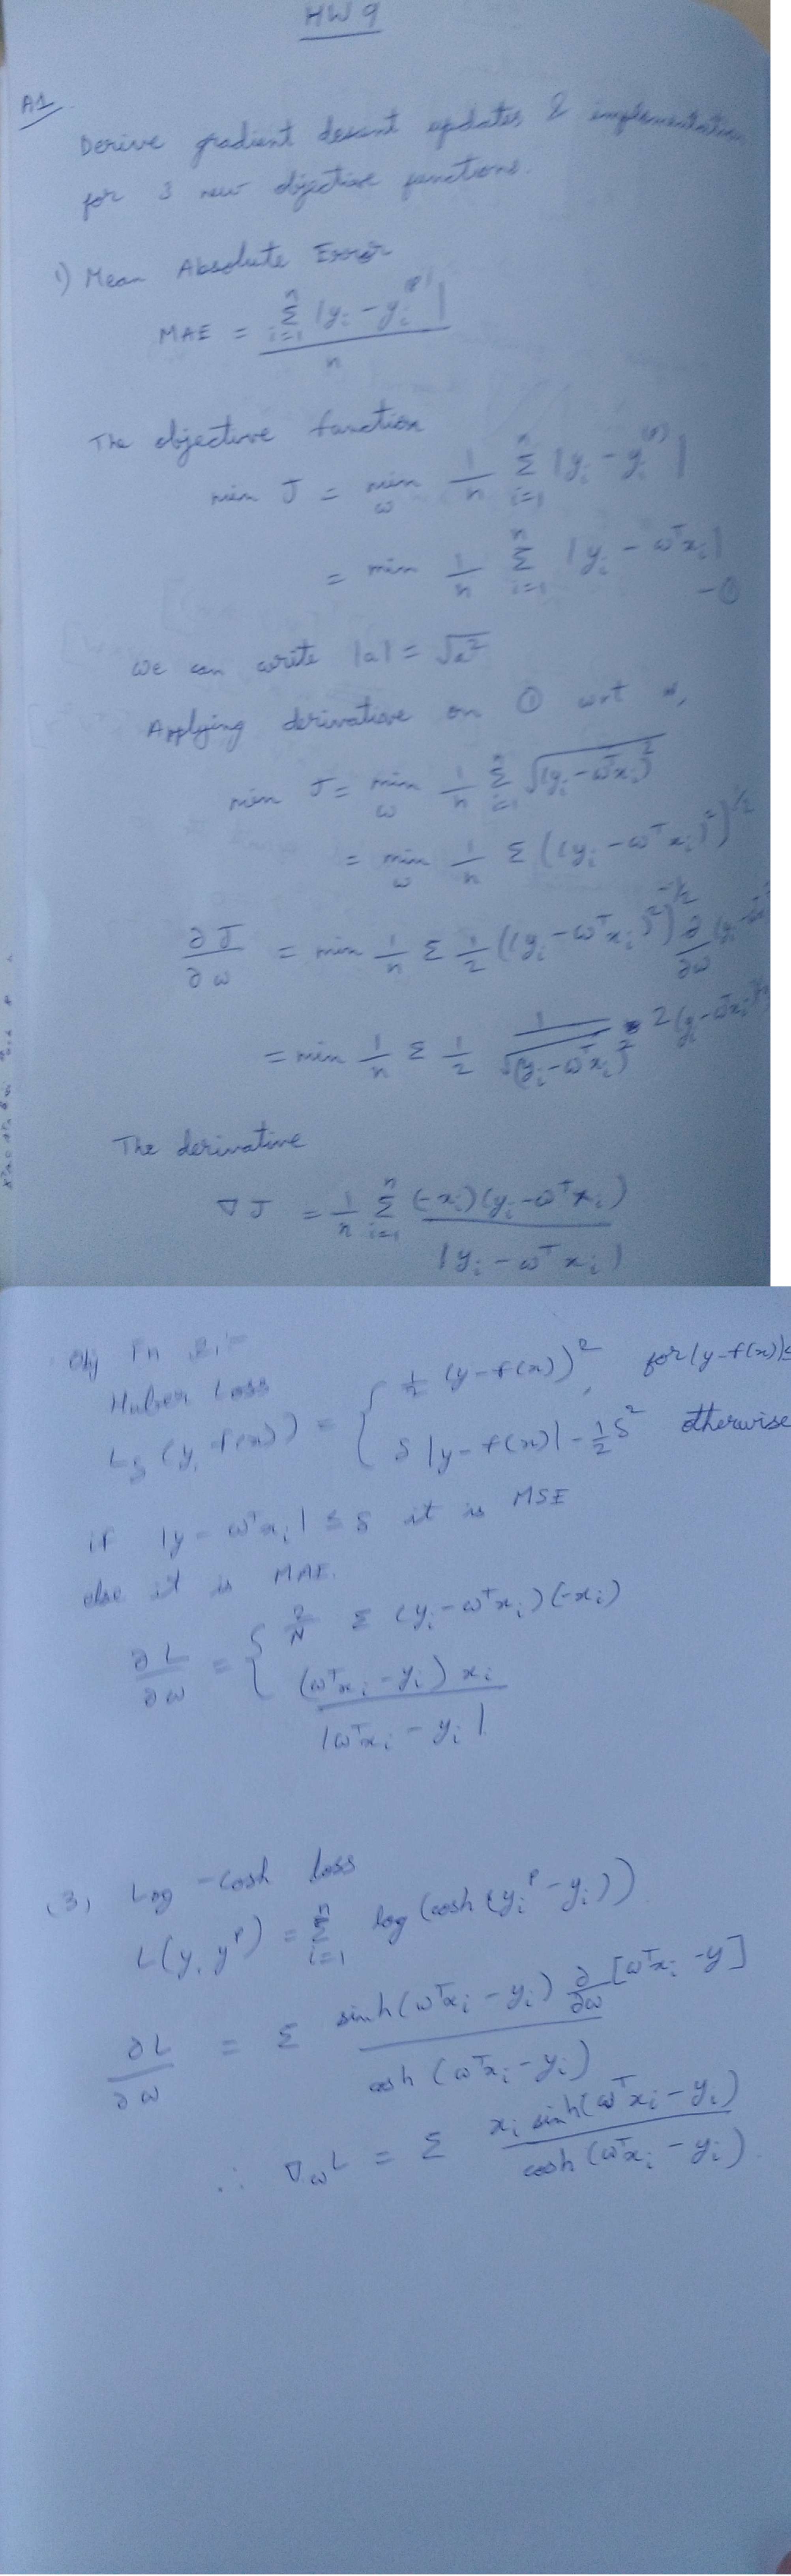 HW 9
A1
Derive gradient desent updates & implementation
for 3 new objective functions.
1) Mean Absolute Error
MAE = \frac{\sum_{i=1}^{n} |y_i - y_i^{(p)}|}{n}
The objective function
min J = min_ω \frac{1}{n} \sum_{i=1}^{n} |y_i - y_i^{(p)}|
= min \frac{1}{n} \sum_{i=1}^{n} |y_i - ω^T x_i| - ①
We can write |a| = \sqrt{a^2}
Applying derivative on ① wrt
min J = min_ω \frac{1}{n} \sum_{i=1}^{n} \sqrt{(y_i - ω^T x_i)^2}
= min_ω \frac{1}{n} Σ ((y_i - ω^T x_i)^2)^{1/2}
\frac{∂J}{∂ω} = min \frac{1}{n} Σ \frac{1}{2} ((y_i - ω^T x_i)^2)^{-1/2} \frac{∂}{∂ω}
= min \frac{1}{n} Σ \frac{1}{2} \frac{1}{\sqrt{(y_i - ω^T x_i)^2}} 2 (y_i - ω^T x_i)
The derivative
∇J = \frac{1}{n} \sum_{i=1}^{n} \frac{(-x_i)(y_i - ω^T x_i)}{|y_i - ω^T x_i|}
Obj Fn 2:-
Huber Loss
L_δ (y, f(x)) = { \frac{1}{2} (y - f(x))^2, for |y - f(x)| ≤
δ |y - f(x)| - \frac{1}{2} δ^2 otherwise
if |y - ω^T x_i| ≤ δ it is MSE
else it is MAE.
\frac{∂L}{∂ω} = { \frac{2}{N} Σ (y_i - ω^T x_i)(-x_i)
\frac{(ω^T x_i - y_i) x_i}{|ω^T x_i - y_i|}
(3) Log-cosh loss
L(y, y^p) = \sum_{i=1}^{n} log(cosh(y_i^p - y_i))
\frac{∂L}{∂ω} = Σ \frac{sinh(ω^T x_i - y_i) \frac{∂}{∂ω} [ω^T x_i - y]}{cosh(ω^T x_i - y_i)}
∴ ∇_ω L = Σ \frac{x_i sinh(ω^T x_i - y_i)}{cosh(ω^T x_i - y_i)}